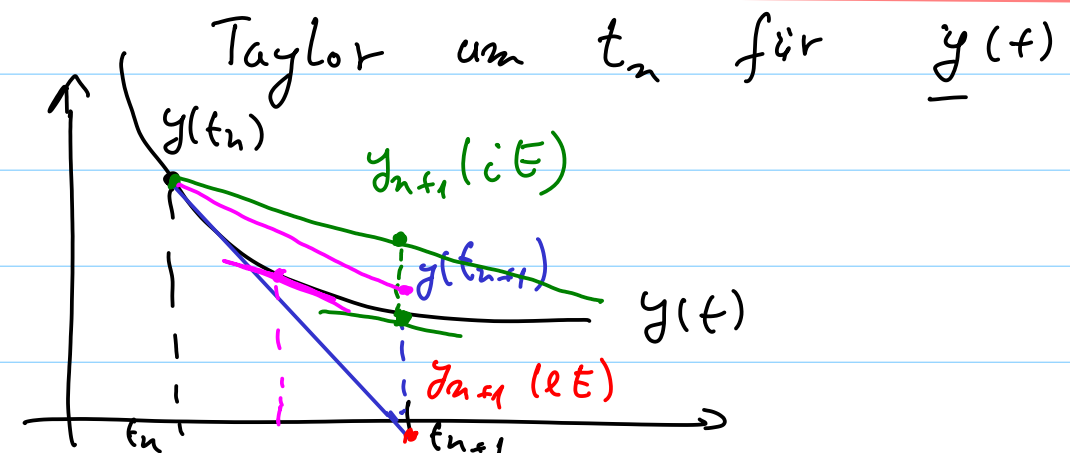 Taylor um tₙ für y(t)
y(tₙ)
yₙ₊₁ (iE)
y(tₙ₊₁)
y(t)
yₙ₊₁ (eE)
tₙ tₙ₊₁